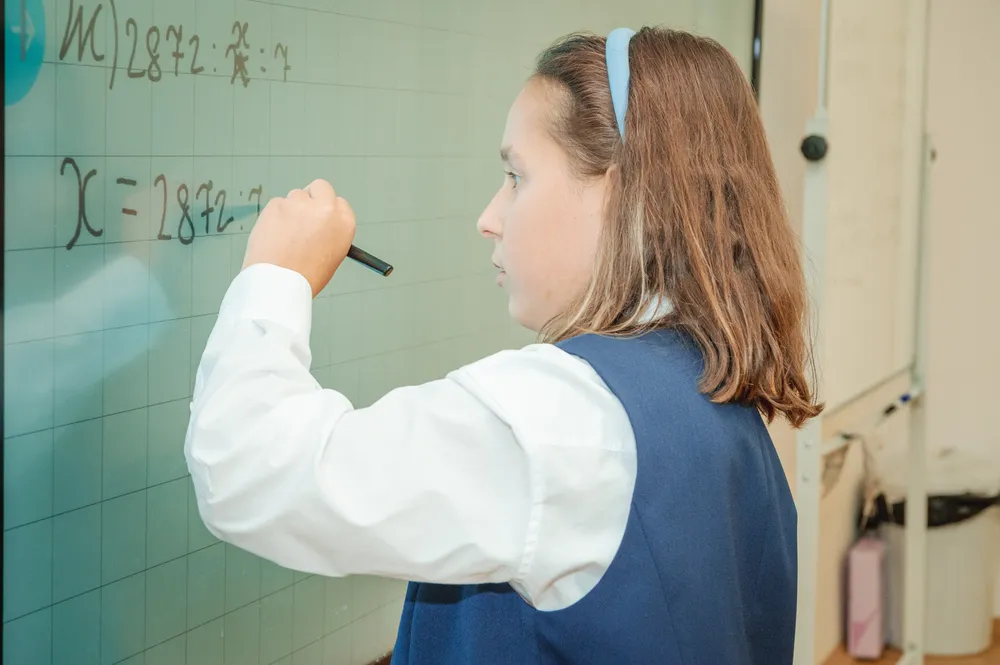 м) 2872 : x : 7
x = 2872 : 7